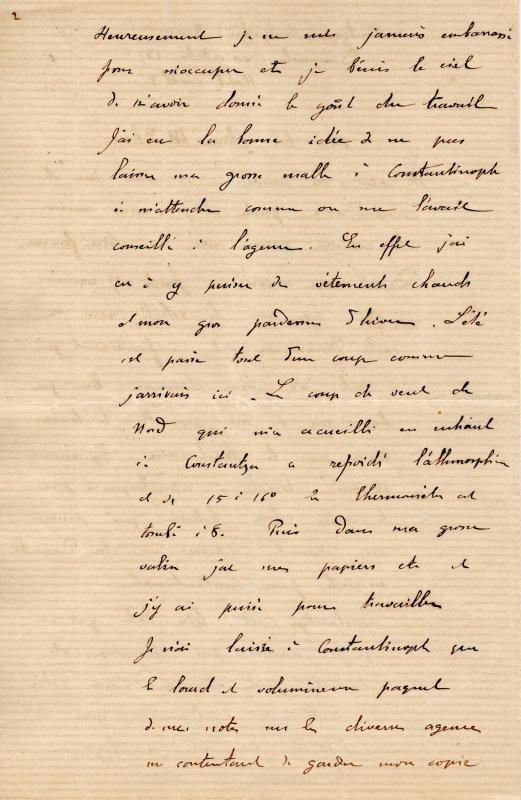 2
Heureusement je ne suis jamais embarrassé
pour m'occuper et je bénis le ciel
de m'avoir donné le goût du travail
J'ai eu la bonne idée de ne pas
laisser ma grosse malle à Constantinople
à m'attendre comme on me l'avait
conseillé à l'agence. En effet j'ai
eu à y puiser des vêtements chauds
et mon gros pardessus d'hiver. L'été
est passé tout d'un coup comme
j'arrivais ici. Le coup de vent de
Nord qui m'a accueilli en entrant
à Constantza a refroidi l'athmosphère
et de 15 à 16° le thermomètre est
tombé à 8. Puis dans ma grosse
valise j'ai mes papiers etc et
j'y ai puisé pour travailler
Je n'ai laissé à Constantinople que
le lourd et volumineux paquet
de mes notes sur les diverses agences
me contentant de garder mon copie